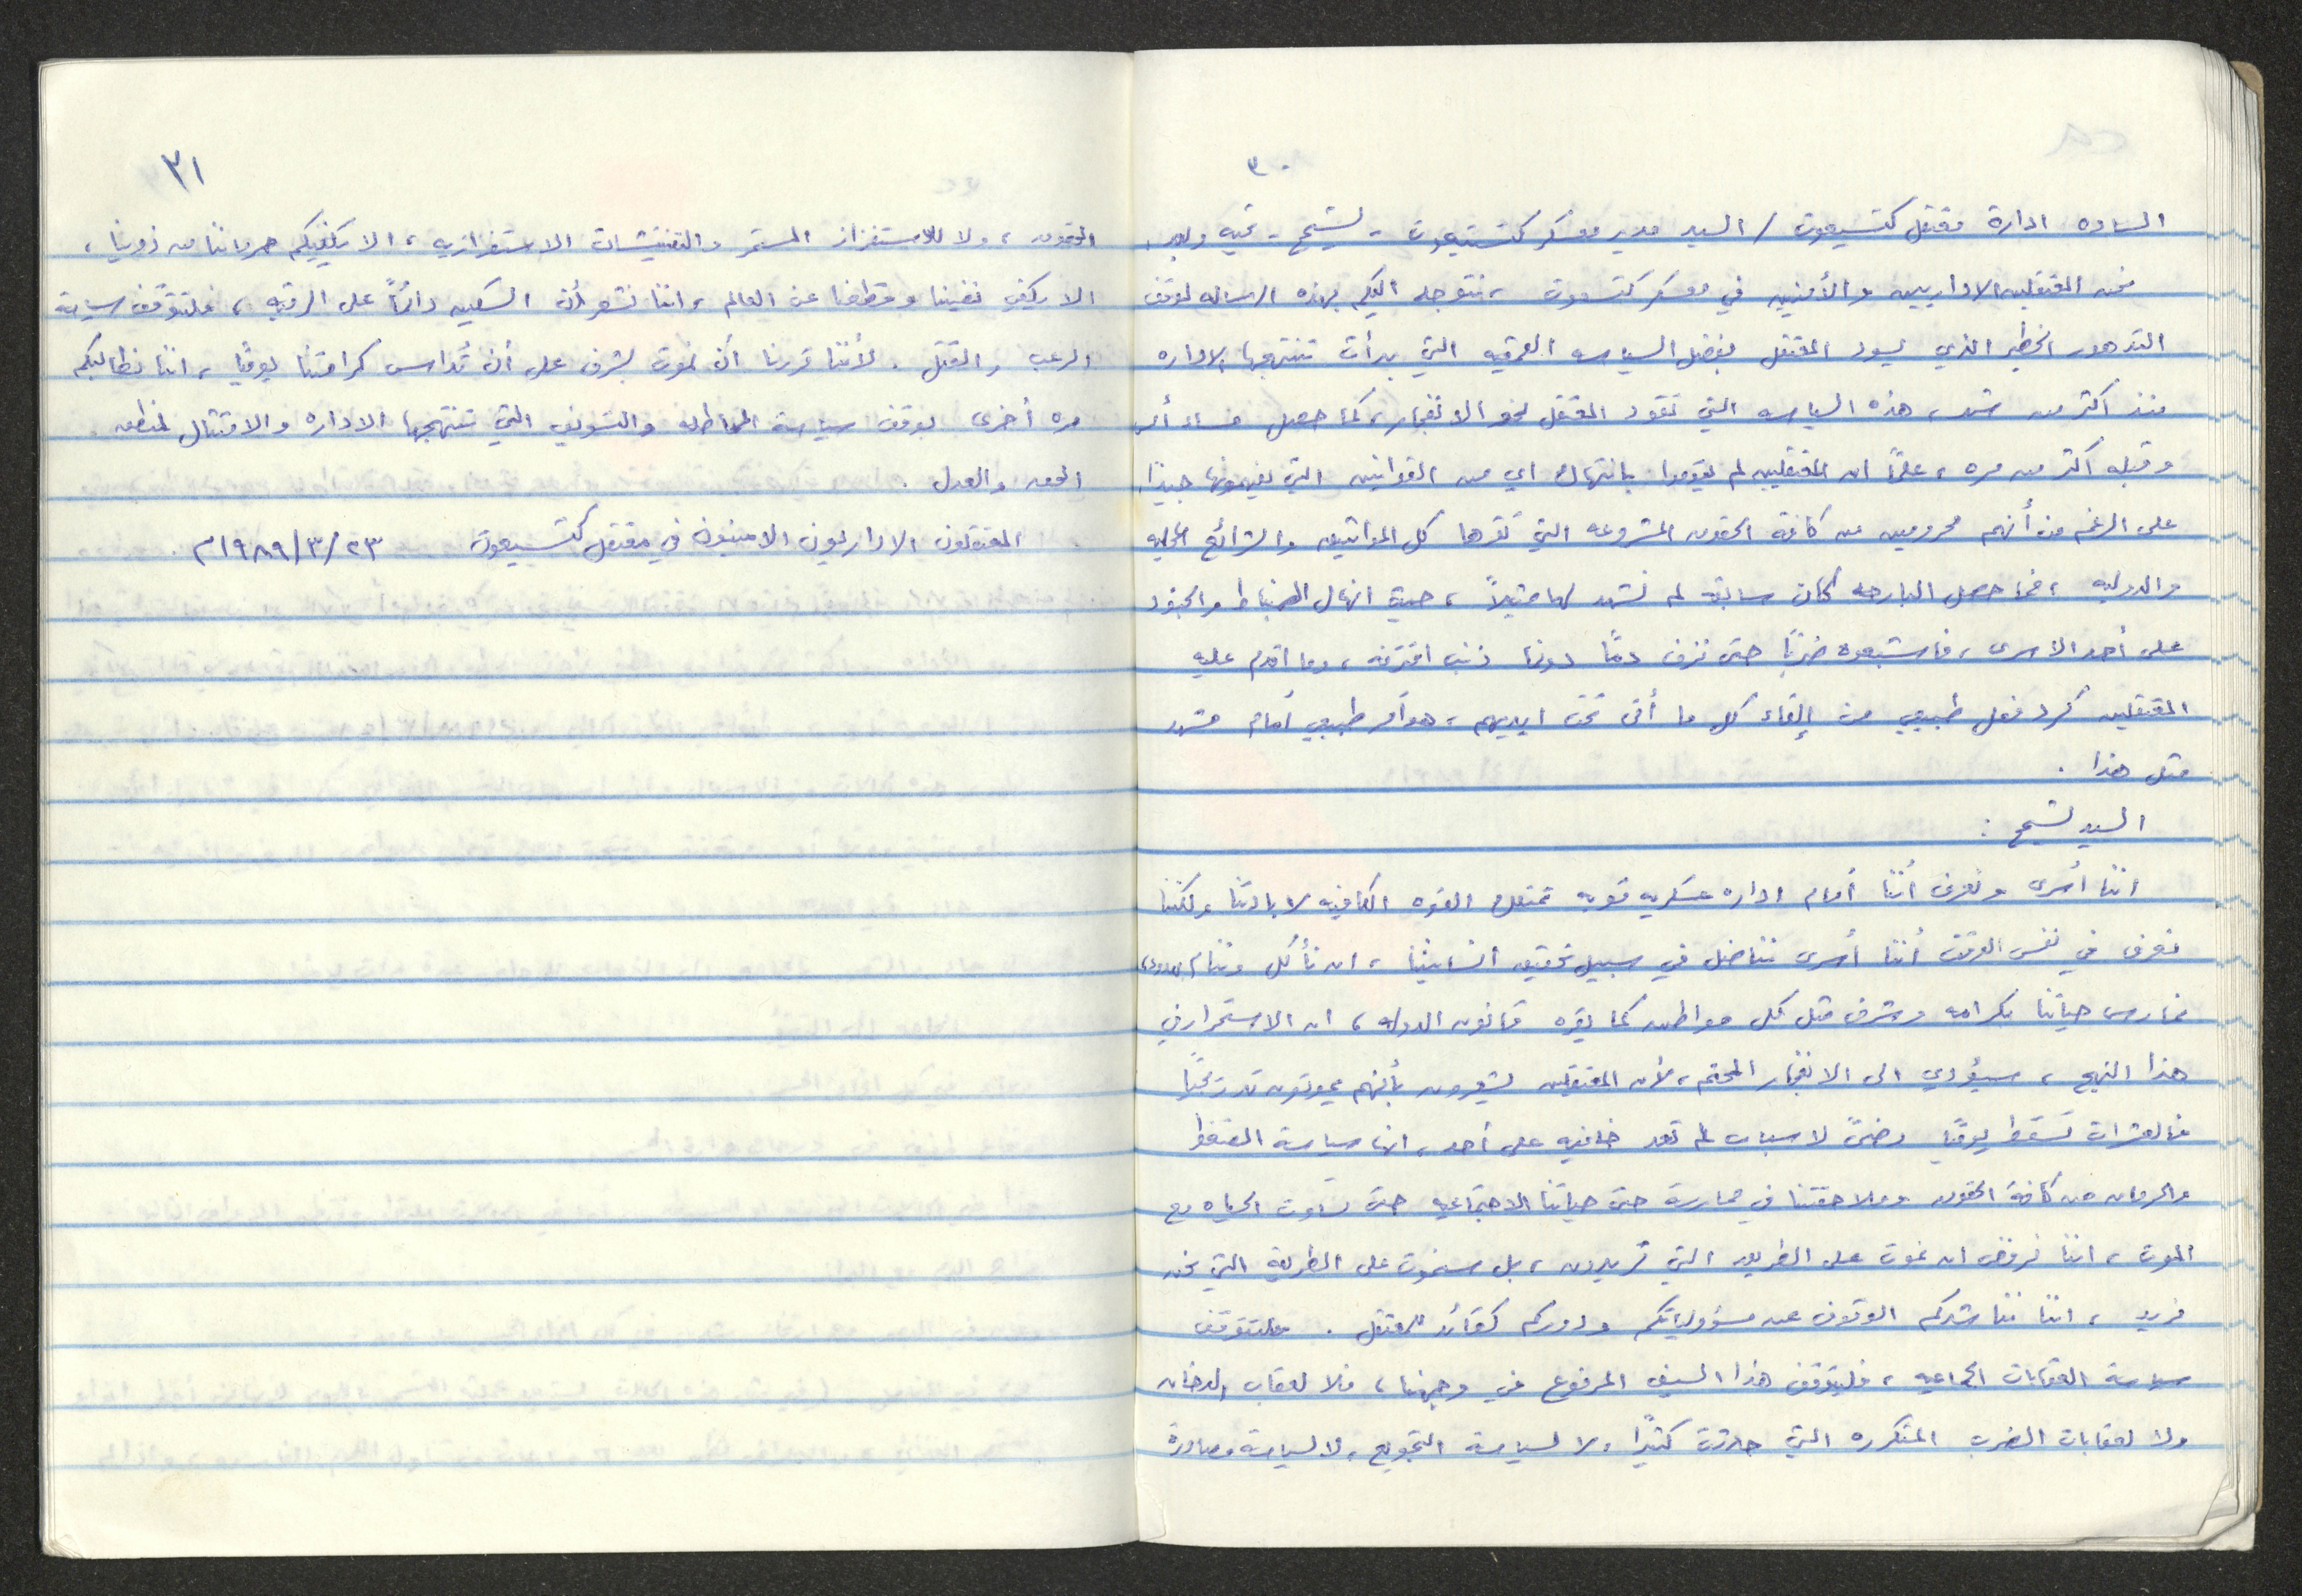 ٣٠
الساده ادارة معتقل كتسيعوت / السيد مدير معسكر كتسيعوت - تسيمح - تحيه وبعد :
نحن المعتقلين الاداريين والأمنيين في معسكر كتسيعوت ، نتوجه اليكم بهذه الرساله لوقف
التدهور الخطير الذي يسود المعتقل بفضل السياسه القمعيه التي بدأت تنتهجها الاداره
منذ اكثر من شهر ، هذه السياسه التي تقود المعتقل نحو الانفجار ، كما حصل مساء أمس
وقبله اكثر من مره ، علماً ان المعتقلين لم يقوموا بانتهاك اي من القوانين التي يفهمونها جيداً .
على الرغم من أنهم محرومين من كافة الحقوق المشروعه التي تقرها كل المواثيق والشرائع المحليه
والدوليه ، فما حصل البارحه كان سابقه لم نشهد لها مثيلاً ، حيث انهال الضباط والجنود
على أحد الاسرى ، فاشبعوه ضرباً حتى نزف دماً دونما ذنب اقترفه ، وما اقدم عليه
المعتقلين كرد فعل طبيعي من إلقاء كل ما أتى تحت ايديهم ، هو أمر طبيعي أمام مشهد
مثل هذا .
السيد تسيمح :
اننا أسرى ونعرف أننا أمام اداره عسكريه قويه تمتلك القوه الكافيه لابادتنا ولكننا
نعرف في نفس الوقت أننا أسرى نناضل في سبيل تحقيق انسانيتنا ، ان نأكل وننام بهدوء ،
نمارس حياتنا بكرامه وشرف مثل كل مواطن كما يقره قانون الدوله ، ان الاستمرار في
هذا النهج ، سيؤدي الى الانفجار المحتم ، لأن المعتقلين يشعرون بأنهم يموتون تدريجياً
فالعشرات تسقط يومياً مرضىً لاسباب لم تعد خافيه على أحد ، انها سياسة الضغط
والحرمان من كافة الحقوق وملاحقتنا في ممارسة حتى حياتنا الاجتماعيه حتى تساوت الحياه مع
الموت ، اننا نرفض ان نموت على الطريقه التي تريدون ، بل سنموت على الطريقه التي نحن
نريد ، اننا نناشدكم الوقوف عند مسؤولياتكم ودوركم كقائد للمعتقل . فلتتوقف
سياسة العقابات الجماعيه ، فليتوقف هذا السيف المرفوع في وجهنا ، فلا لعقاب الدخان
ولا لعقابات الضرب المتكرره التي حدثت كثيراً ولا لسياسة التجويع ، لا لسياسة مصادرة
٣١
الحقوق ، ولا للاستفزاز المستمر والتفتيشات الاستفزازيه ، الا يكفيكم حرماننا من ذوينا ،
الا يكفي نفينا وقطعنا عن العالم ، اننا نشعر أن السكين دائماً على الرقبه ، فلتتوقف سياسة
الرعب والقتل . لأننا قررنا أن نموت بشرف على أن تُداس كرامتنا يومياً ، اننا نطالبكم
مره أخرى بوقف سياسة المماطله والتسويف التي تنتهجها الاداره والامتثال لمنطق
الحق والعدل .
المعتقلون الاداريون الامنيون في معتقل كتسيعوت ٢٣/٣/١٩٨٩م .